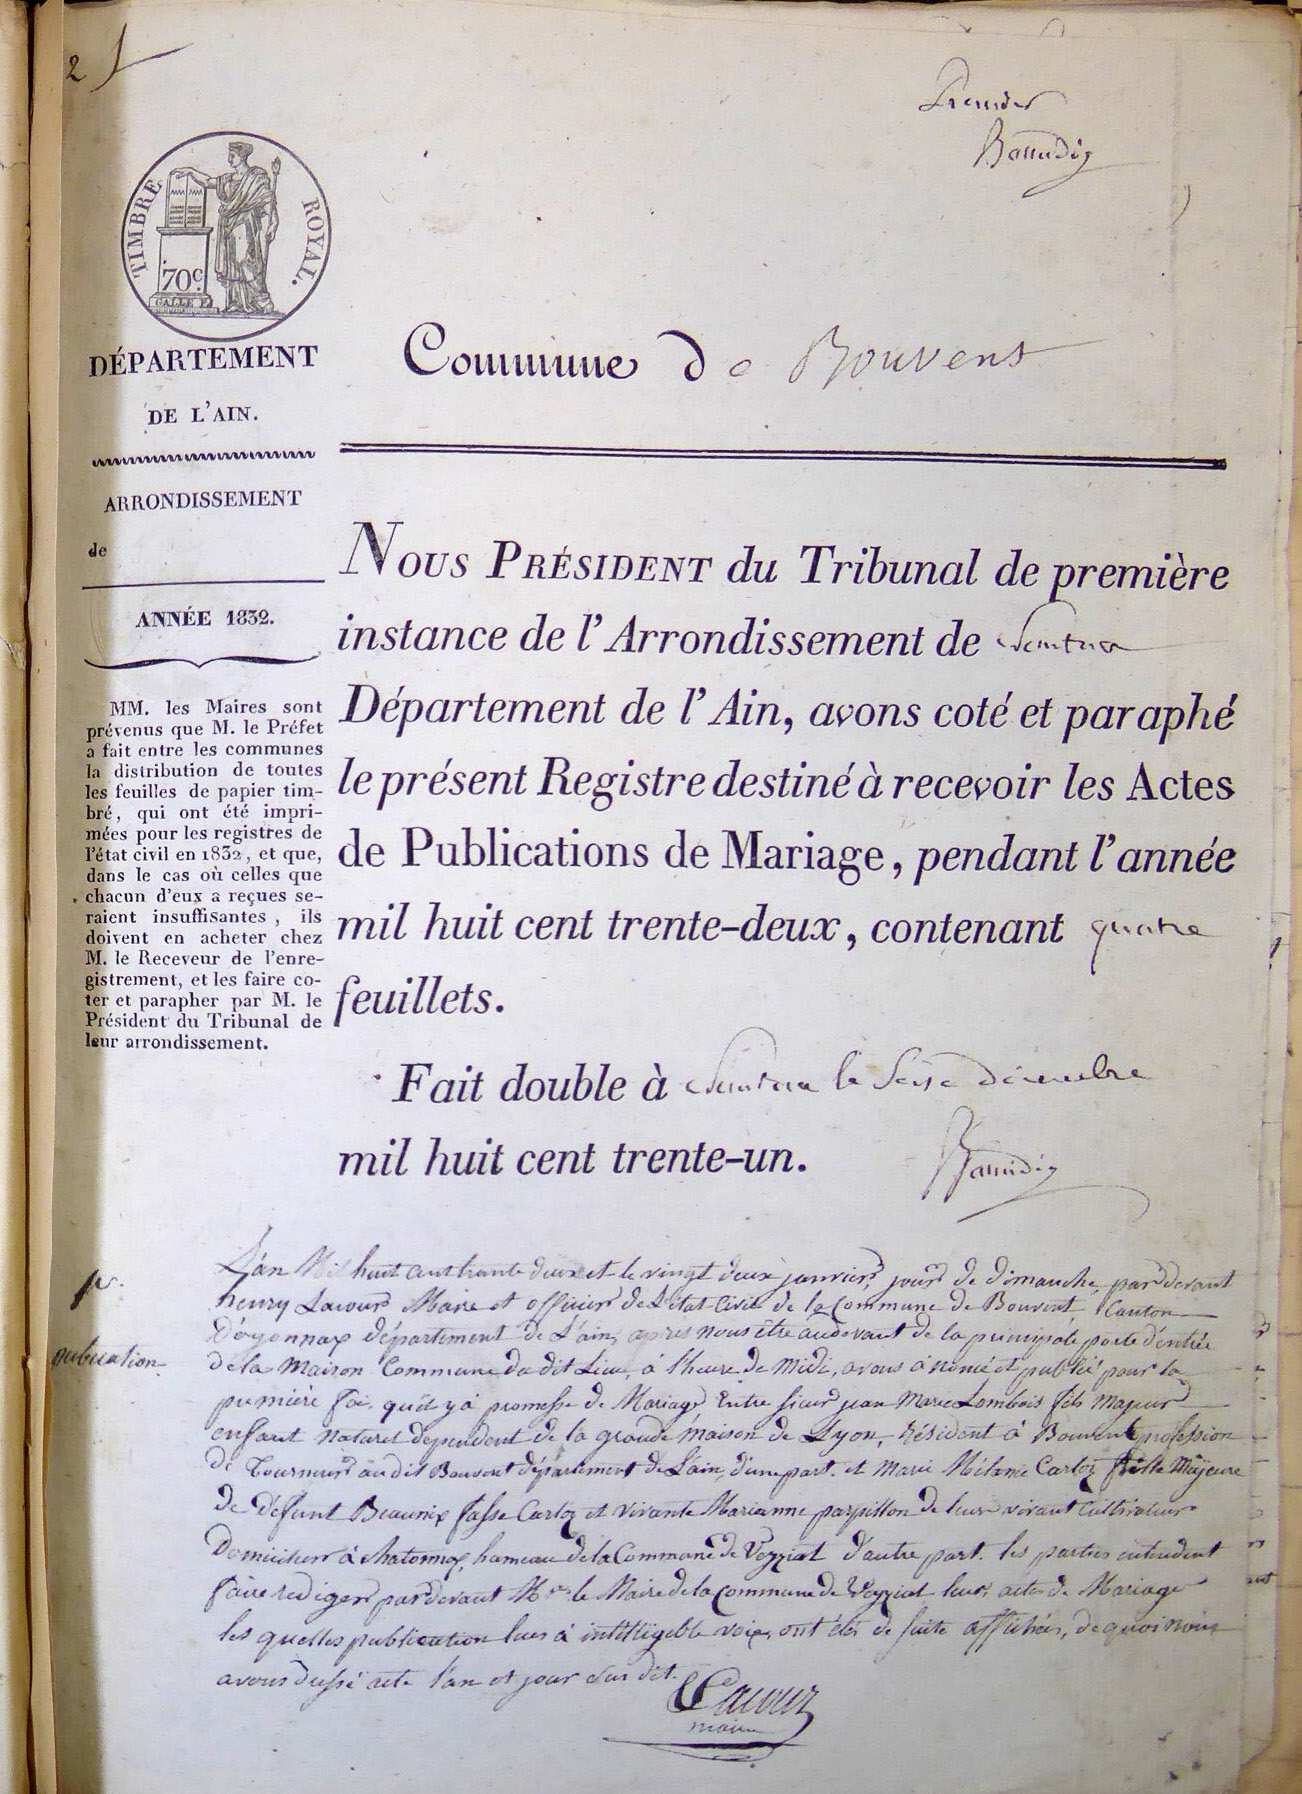 2
Premier
TIMBRE ROYAL.
70c.
DÉPARTEMENT
DE L'AIN.
Commune de Bouvent
ARRONDISSEMENT
de
ANNÉE 1832.
MM. les Maires sont
prévenus que M. le Préfet
a fait entre les communes
la distribution de toutes
les feuilles de papier tim-
bré, qui ont été impri-
mées pour les registres de
l'état civil en 1832, et que,
dans le cas où celles que
chacun d'eux a reçues se-
raient insuffisantes, ils
doivent en acheter chez
M. le Receveur de l'enre-
gistrement, et les faire co-
ter et parapher par M. le
Président du Tribunal de
leur arrondissement.
NOUS PRÉSIDENT du Tribunal de première
instance de l'Arrondissement de Nantua
Département de l'Ain, avons coté et paraphé
le présent Registre destiné à recevoir les Actes
de Publications de Mariage, pendant l'année
mil huit cent trente-deux, contenant quatre
feuillets.
Fait double à Nantua le Seize décembre
mil huit cent trente-un.
publication
L'an Mil huit cent trente deux et le vingt deux janvier, jour de dimanche, par devant
henry Lacour Maire et officier de L'état Civil de la Commune de Bouvent Canton
D'oyonnax département de L'ain, après nous être au devant de la principale porte d'entrée
de la Maison Commune du dit Lieu, à l'heure de Midi, avons anoncé et publié pour la
première foi, qu'il y à promesse de Mariage Entre sieur jean Marie Lombois fils Majeur
enfant naturel dependent de la grande maison de Lyon, Résident à Bouvent profession
de Tourneur au dit Bouvent département de L'ain, d'une part. et Marie Mélanie Carloz fille Majeure
de défunt Carloz et vivante Marianne parpillon de leur vivant Cultivateur
Domicilier à Chatonnax, hameau de la Commune de Veyziat d'autre part. les parties entendent
faire rediger par devant Mr. le Maire de la commune de Veyziat leur acte de Mariage
les quelles publication lues à intelligeble voix, ont étés de suite affichées, de quoi nous
avons dressé acte l'an et jour Sus dit.
Lacour
maire